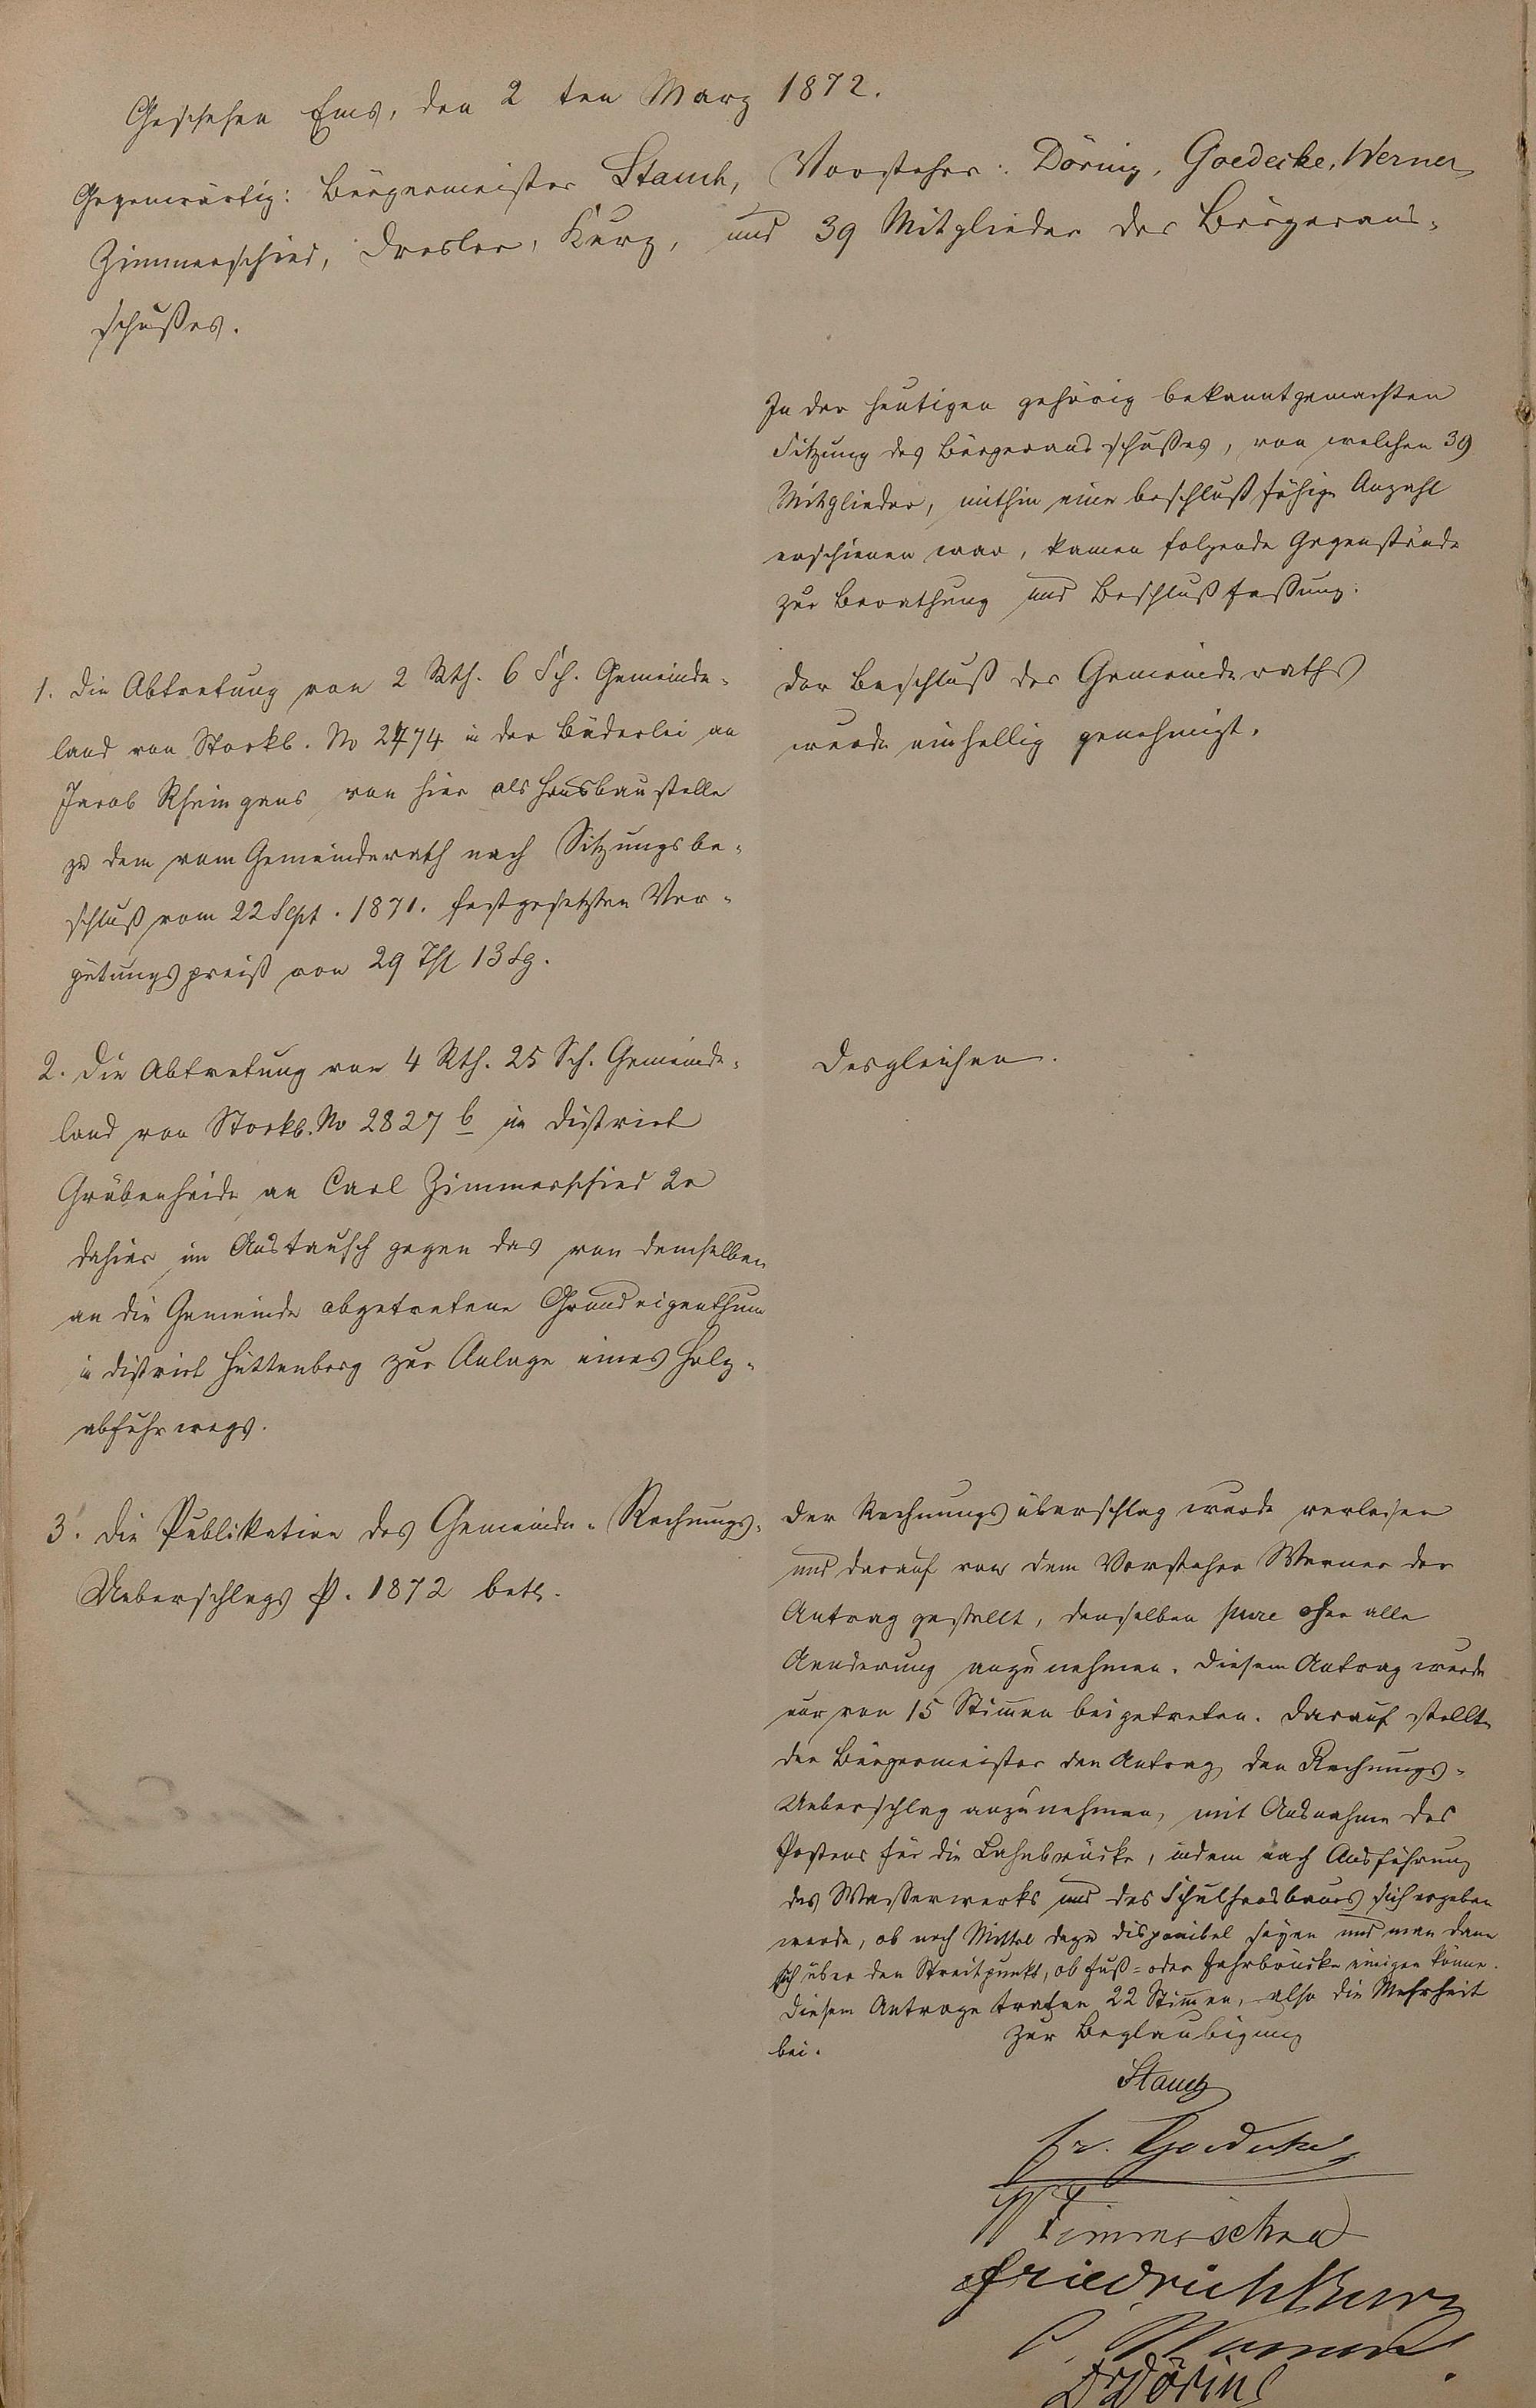 Geschehen Ems, den 2 ten Marz 1872.
Gegenwärtig: Bürgermeister Stauch, Vorsteher: Döring, Goedecke, Werner,
Zimmerschied, Dresler, Kurz, und 39 Mitglieder des Bürgeraus-
schußes.
In der heutigen gehörig bekanntgemachten
Sitzung des Bürgerausschußes, von welchen 39
Mitglieder, mithin eine beschlußfähige Anzahl
erschienen war, kamen folgende Gegenstände
zur Berathung und Beschlußfaßung:
1. Die Abtretung von 2 Rth. 6 Sch. Gemeinde-
land von Stockb. No 2474 in der Bäderlei an
Jacob Rheingans von hier als Hausbaustelle
zu dem vom Gemeinderath nach Sitzungsbe-
schluß vom 22 Sept. 1871. festgesetzten Ver-
gütungspreiß von 29 Thl 13 Sg.
Der Beschluß des Gemeinderaths
wurde einhellig genehmigt.
2. Die Abtretung von 4 Rth. 25 Sch. Gemeinde-
land von Stockb. No 2827 b in District
Gräbenheide an Carl Zimmerschied 2r
dahier im Austausch gegen das von demselben
an die Gemeinde abgetretene Grundeigenthum
in District Hüttenberg zur Anlage eines Holz-
abfuhrwegs.
Desgleichen.
3. Die Publikation des Gemeinde-Rechnungs-
Ueberschlags p. 1872 betr.
Der Rechnungsüberschlag wurde verlesen
und darauf von dem Vorsteher Werner der
Antrag gestellt, denselben pure ohne alle
Aenderung anzunehmen. Diesem Antrag wurde
nur von 15 Stimen beigetreten. Darauf stellte
der Bürgermeister den Antrag den Rechnungs-
Ueberschlag anzunehmen, mit Ausnahme des
Postens für die Lahnbrücke, indem nach Ausführung
des Wasserwerks und des Schulhausbaues sich ergeben
werde, ob noch Mittel dazu disponibel seyen und man dann
sich über den Streitpunkt, ob Fuß- oder Fahrbrücke einigen könne.
Diesem Antrage traten 22 Stimen, also die Mehrheit
bei.
Zur Beglaubigung
Stauch
Fr. Goedecke
W Zimmerschied
Friedrich Kurz
C. Werner
Dr Döring